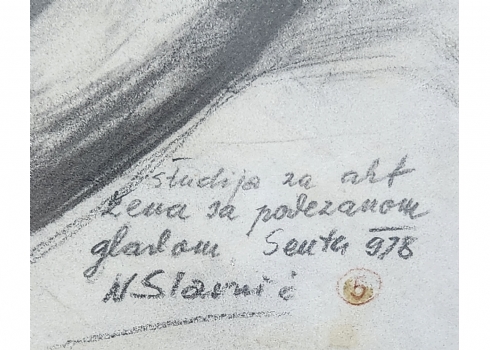 studija za akt
žena sa podezanom
glavom Senta 978
N Slavnić
b